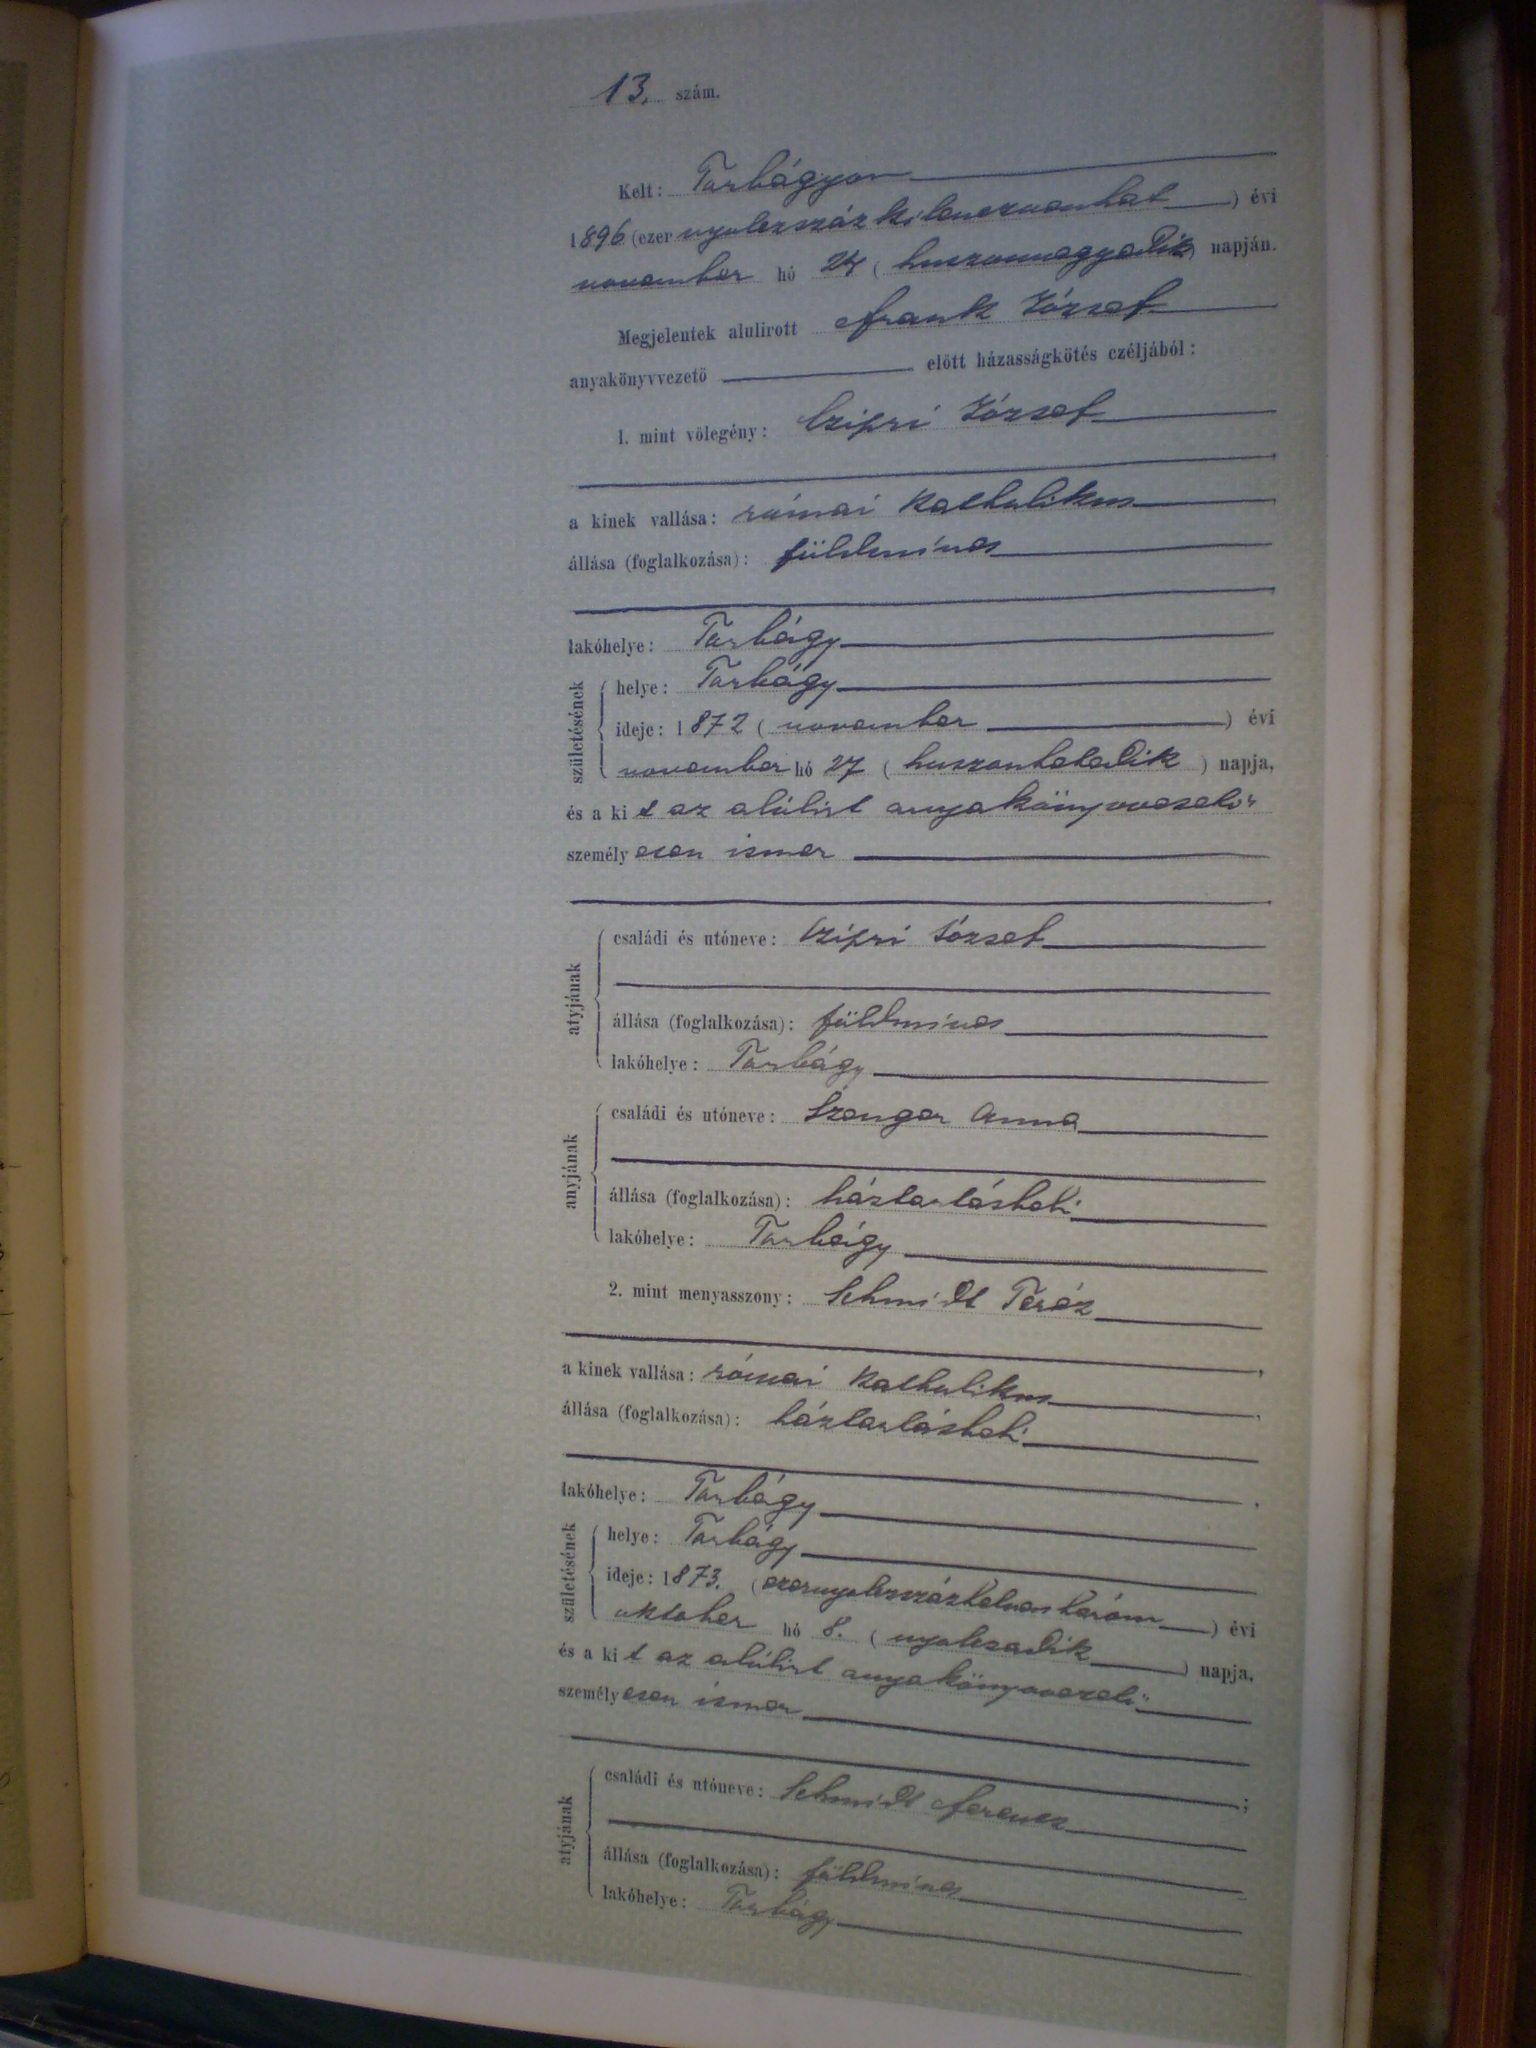 13. szám.
Kelt: Torbágyon
1896 (ezer nyolczszáz kilenczvenhat) évi
november hó 24 (huszonnegyedik) napján.
Megjelentek alulirott Frank József
anyakönyvvezető előtt házasságkötés czéljából:
1. mint vőlegény: Czipri József
a kinek vallása: római katholikus
állása (foglalkozása): földmíves
lakóhelye: Torbágy
születésének
helye: Torbágy
ideje: 1872 (november) évi
november hó 27 (huszonhetedik) napja,
és a kit az alúlirt anyakönyvvezető
személyesen ismer
atyjának
családi és utóneve: Czipri József
állása (foglalkozása): földmíves
lakóhelye: Torbágy
anyjának
családi és utóneve: Szenger Anna
állása (foglalkozása): háztartásbeli
lakóhelye: Torbágy
2. mint menyasszony: Schmidt Teréz
a kinek vallása: római katholikus
állása (foglalkozása): háztartásbeli
lakóhelye: Torbágy
születésének
helye: Torbágy
ideje: 1873. (ezernyolczszázhetvenhárom) évi
oktober hó 8. (nyolczadik) napja,
és a kit az alúlirt anyakönyvvezető
személyesen ismer
atyjának
családi és utóneve: Schmidt Ferencz
állása (foglalkozása): földmíves
lakóhelye: Torbágy